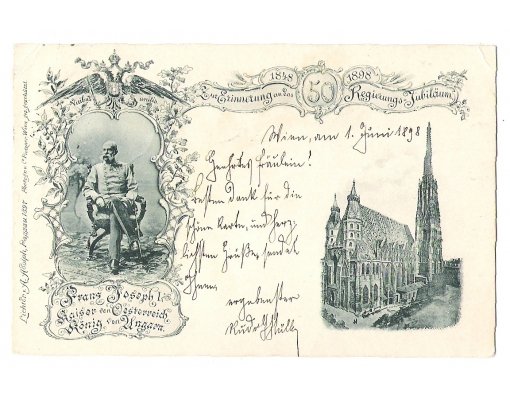 1848 1898
Zur Erinnerung an das 50 Regierungs-Jubiläum
Viribus unitis
Wien, am 1. Juni 1898
Geehrtes Fräulein!
besten Dank für die
schöne Karte, und herz-
lichsten Grüße, sendet
Ihnen
ergebenster
Franz Joseph I.
Kaiser von Oesterreich
König von Ungarn.